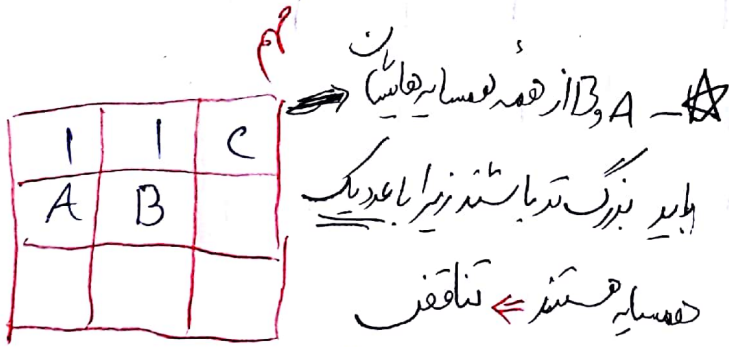 م
☆ - A و B از همهٔ همسایه هایشان
باید بزرگ تر باشند زیرا با عدد یک
همسایه هستند ⇐ تناقض
1 1 C
A B